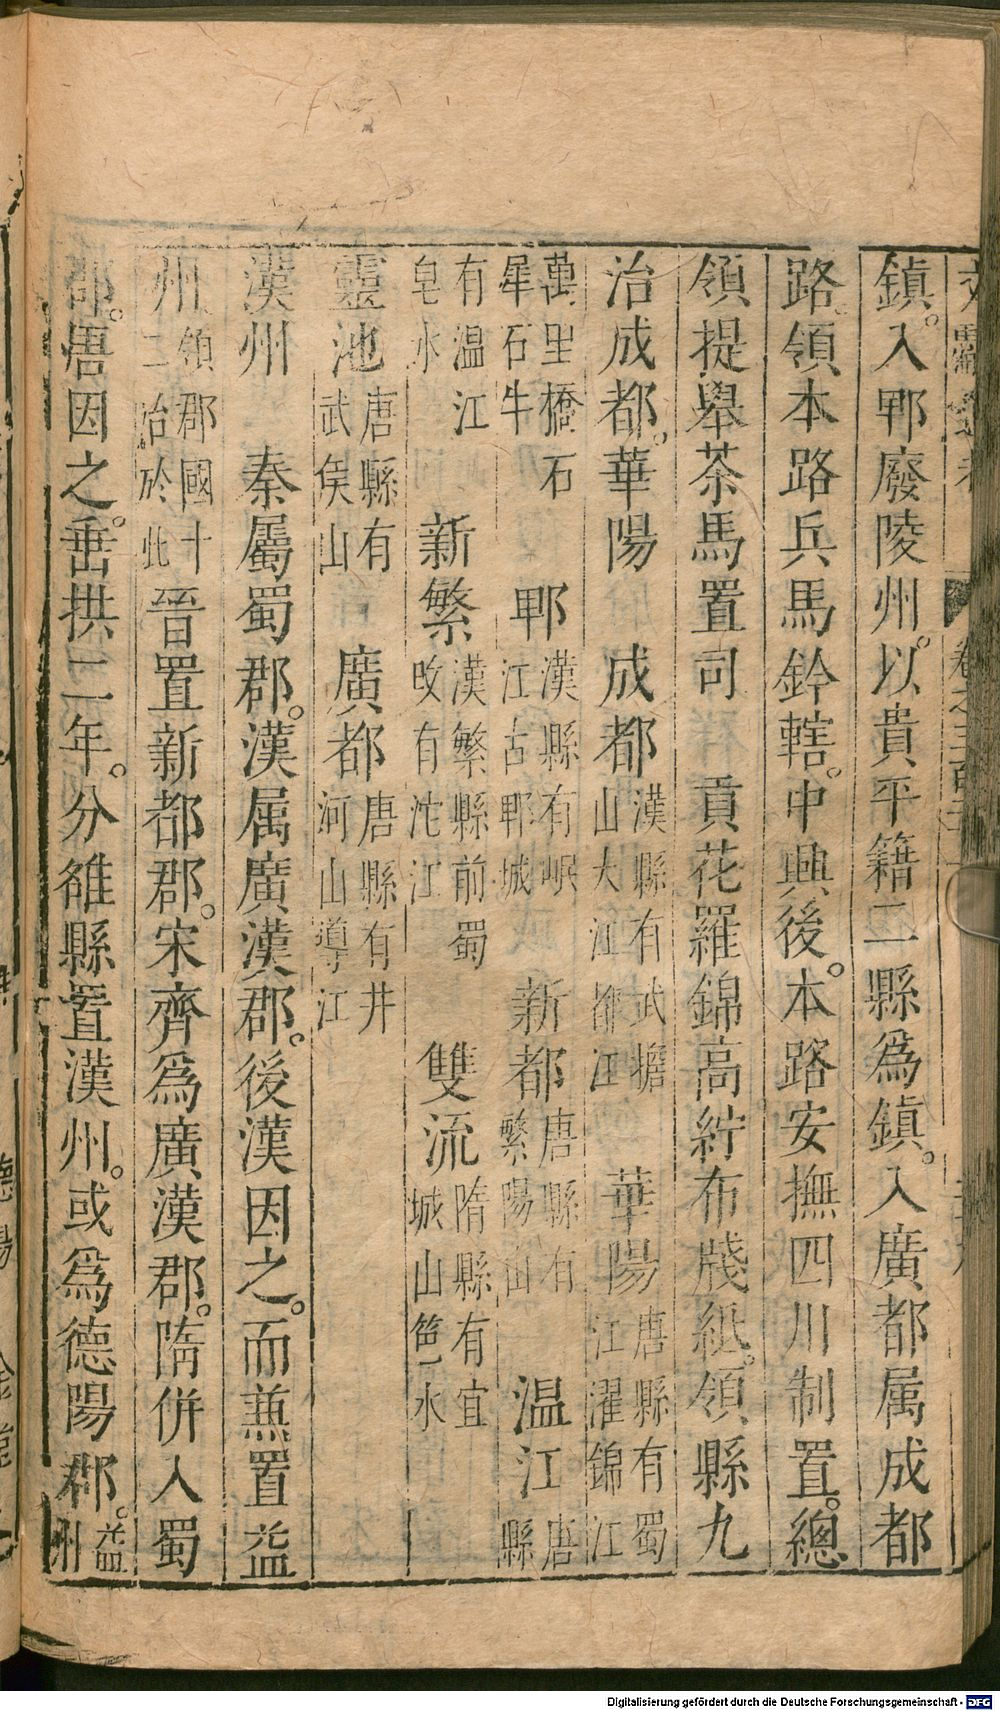 卷之三百二十一
鎮。入郫廢陵州。以貴平籍二縣爲鎮。入廣都属成都
路。領本路兵馬鈐轄。中興後。本路安撫四川制置。總
領提舉茶馬置司 貢花羅錦高紵布牋紙。領縣九
治成都。華陽 成都 漢縣有武擔山大江 江 華陽 唐縣有蜀江濯錦江
萬里橋石犀石牛 郫 漢縣有岷江古郫城 新都 唐縣有繁陽山 温江 唐縣
有温江皂水 新繁 漢繁縣前蜀改有沱江 雙流 隋縣有宜城山笆水
靈池 唐縣有武侯山 廣都 唐縣有井河山導江
漢州 秦屬蜀郡。漢属廣漢郡。後漢因之。而兼置益
州 領郡國十二治於此 晉置新都郡。宋齊爲廣漢郡。隋併入蜀
郡。唐因之。垂拱二年。分雒縣置漢州。或爲德陽郡。益州
Digitalisierung gefördert durch die Deutsche Forschungsgemeinschaft - DFG